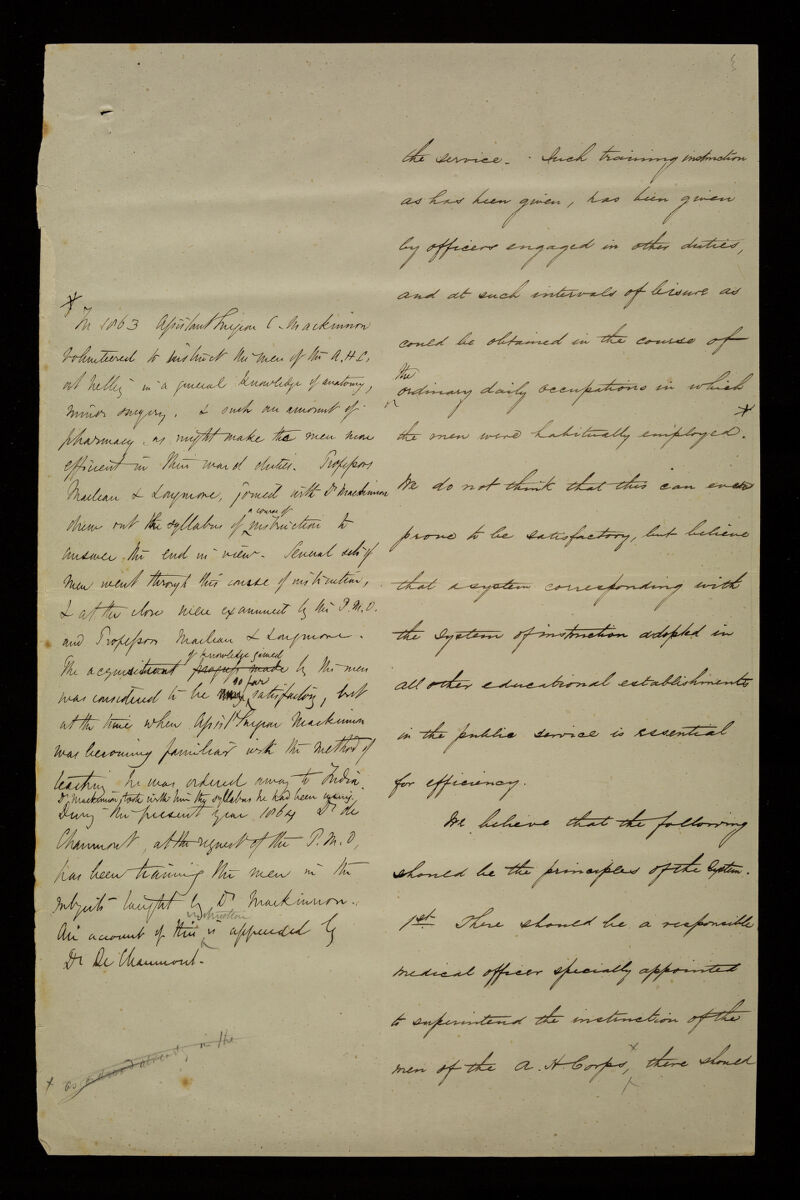 the service. Such training instruction
as has been given, has been given
by officers engaged in other duties,
and at such intervals of leisure as
could be obtained in the course of
the
ordinary daily occupations in which
the men were habitually employed. *
We do not think that this can ever
prove to be satisfactory, but believe
that a system corresponding with
the system of instruction adopted in
all other educational establishments
in the public service is essential
for efficiency.
We believe that the following
should be the principles of the System.
1st. There should be a responsible
medical officer specially appointed
to superintend the instruction of the
men of the A. H. Corps, x there should
* In 1863 Assistant Surgeon C. Mackinnon
volunteered to instruct the men of the A.H.C.
at Netley in a general knowledge of anatomy,
minor surgery, & such an amount of
pharmacy, as might make the men more
efficient in their ward duties. Professors
Maclean & Longmore, joined with Dr Mackinnon
drew out the syllabus of a course of instruction to
answer the end in view. Several sets of
men went through this course of instruction,
& at the close were examined by the P.M.O.
and Professors Maclean & Longmore.
of knowledge gained
The progress made by the men
so far
was considered to be satisfactory, but
at the time when Assist Surgeon Mackinnon
was becoming familiar with the method of
teaching he was ordered away to India.
Dr Mackinnon took with him the syllabus he had been using.
During the present year, 1864 Dr de
Chaumont, at the request of the P.M.O,
has been training the men in the
subjects taught by Dr Mackinnon.
instruction
An account of this is appended by
Dr De Chaumont.
x as already, in the